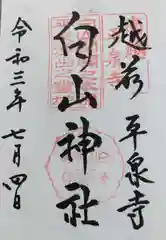 越前 平泉寺
白山神社
令和三年 七月四日